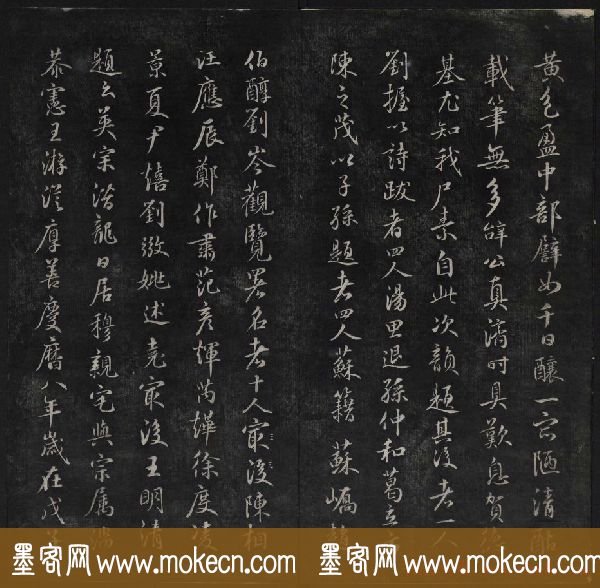 黃色盈中部譬如千日釀一官陋清
載筆無多辭公真滿時具歎息賀
基尤知我尺素自此次韻題其後者一人
劉握以詩跋者四人湯思退孫仲和葛立
陳之茂以子孫題者四人蘇籀蘇嶠
伯醇劉岑觀覽署名者十人寂後陳桷
汪應辰鄭作肅范彥輝芮燁徐度凌
景夏尹焞劉㢸姚述堯寂後王明清
題云英宗潛龍日居穆親宅與宗屬
恭憲王游從厚善慶曆八年歲在戊
墨客网 www.mokecn.com 墨客网 www.mokecn.com